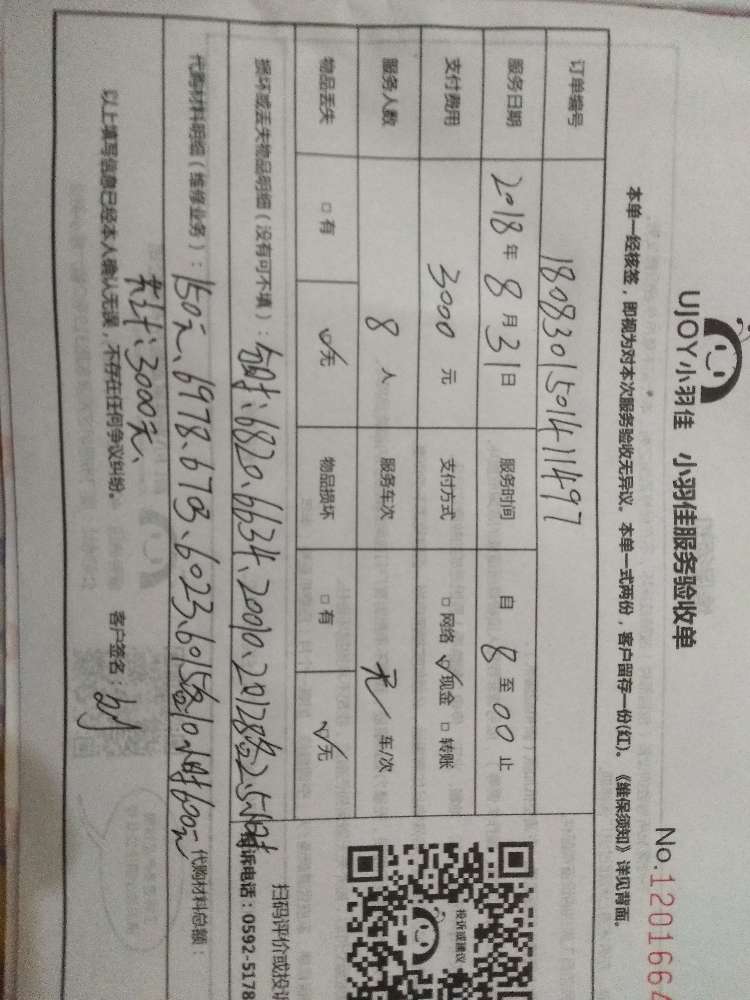 UJOY小羽佳 小羽佳服务验收单
No.1201664
本单一经核签，即视为对本次服务验收无异议。本单一式两份，客户留存一份(红)。《维保须知》详见背面。
订单编号 180830150141497
服务日期 2018年8月31日 服务时间 自 8 至 00 止
支付费用 3000元 支付方式 □网络 ☑现金 □转账
服务人数 8人 服务车次 无 车/次
物品丢失 □有 ☑无 物品损坏 □有 ☑无
损坏或丢失物品明细（没有可不填）：
6820、6634、20010、20128各2.5小时
代购材料明细（维修业务）：150元、6978、6703、6023、6015各10小时600元
代购材料总额：
共计：3000元、
以上填写信息已经本人确认无误，不存在任何争议纠纷。 客户签名：
投诉或建议
扫码评价或投诉
投诉电话：0592-5178